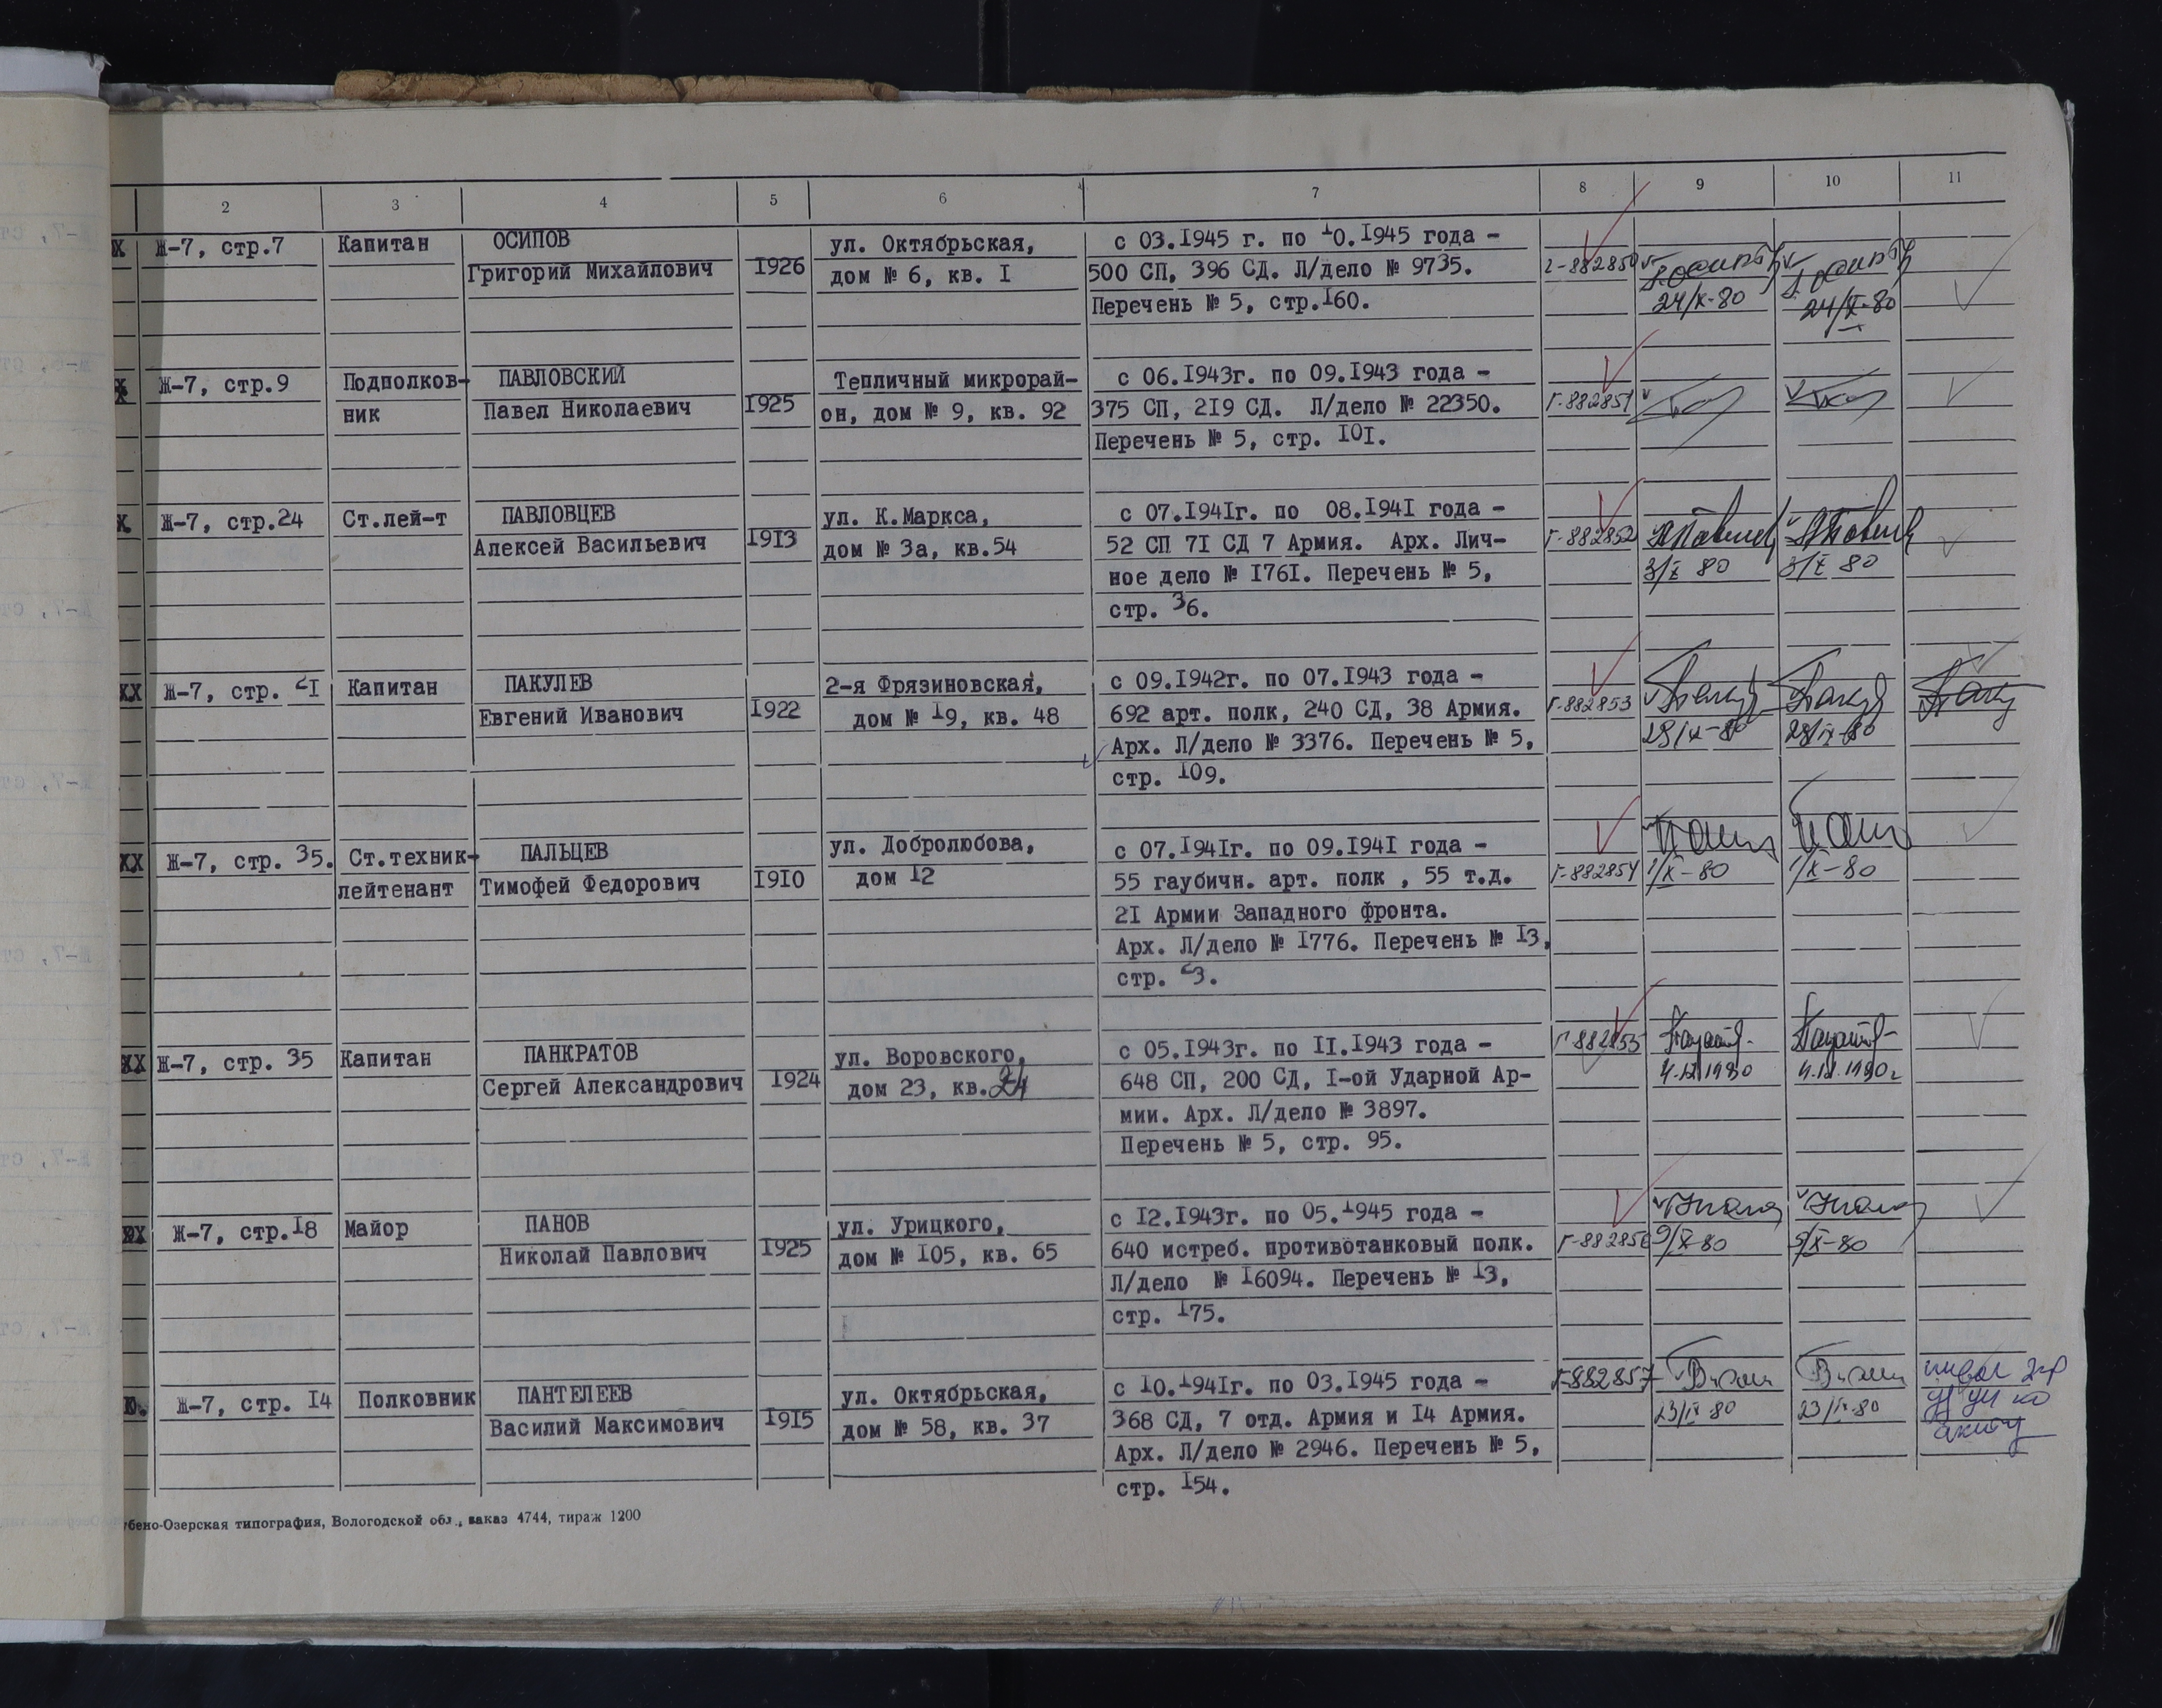 2 3 4 5 6 7 8 9 10 11
Х Ж-7, стр.7 Капитан ОСИПОВ ул. Октябрьская, с 03.1945 г. по 10.1945 года -
Григорий Михайлович 1926 дом № 6, кв. 1 500 СП, 396 СД. Л/дело № 9735. Г-882850
Перечень № 5, стр.160. 24/X-80 24/X-80
Ж-7, стр.9 Подполков- ПАВЛОВСКИЙ Тепличный микрорай- с 06.1943г. по 09.1943 года -
ник Павел Николаевич 1925 он, дом № 9, кв. 92 375 СП, 219 СД. Л/дело № 22350. Г-882851
Перечень № 5, стр. 101.
Х Ж-7, стр.24 Ст.лей-т ПАВЛОВЦЕВ ул. К.Маркса, с 07.1941г. по 08.1941 года -
Алексей Васильевич 1913 дом № 3а, кв.54 52 СП 71 СД 7 Армия. Арх. Лич- Г-882852
ное дело № 1761. Перечень № 5, 3/X 80 3/X 80
стр. 36.
ХХ Ж-7, стр. 21 Капитан ПАКУЛЕВ 2-я Фрязиновская, с 09.1942г. по 07.1943 года -
Евгений Иванович 1922 дом № 19, кв. 48 692 арт. полк, 240 СД, 38 Армия. Г-882853
Арх. Л/дело № 3376. Перечень № 5,
стр. 109.
ХХ Ж-7, стр. 35. Ст.техник- ПАЛЬЦЕВ ул. Добролюбова, с 07.1941г. по 09.1941 года -
лейтенант Тимофей Федорович 1910 дом 12 55 гаубичн. арт. полк , 55 т.д. Г-882854 1/X-80 1/X-80
21 Армии Западного фронта.
Арх. Л/дело № 1776. Перечень № 13,
стр. 23.
ХХ Ж-7, стр. 35 Капитан ПАНКРАТОВ ул. Воровского, с 05.1943г. по 11.1943 года - Г-882855
Сергей Александрович 1924 дом 23, кв.24 648 СП, 200 СД, 1-ой Ударной Ар-
мии. Арх. Л/дело № 3897.
Перечень № 5, стр. 95.
Ж-7, стр.18 Майор ПАНОВ ул. Урицкого, с 12.1943г. по 05.1945 года -
Николай Павлович 1925 дом № 105, кв. 65 640 истреб. противотанковый полк. Г-882856 9/X-80
Л/дело № 16094. Перечень № 13,
стр. 175.
Ж-7, стр. 14 Полковник ПАНТЕЛЕЕВ ул. Октябрьская, с 10.1941г. по 03.1945 года - Г-882857
Василий Максимович 1915 дом № 58, кв. 37 368 СД, 7 отд. Армия и 14 Армия. 23/IX 80 23/IX-80
Арх. Л/дело № 2946. Перечень № 5,
стр. 154.
бено-Озерская типография, Вологодской обл., заказ 4744, тираж 1200